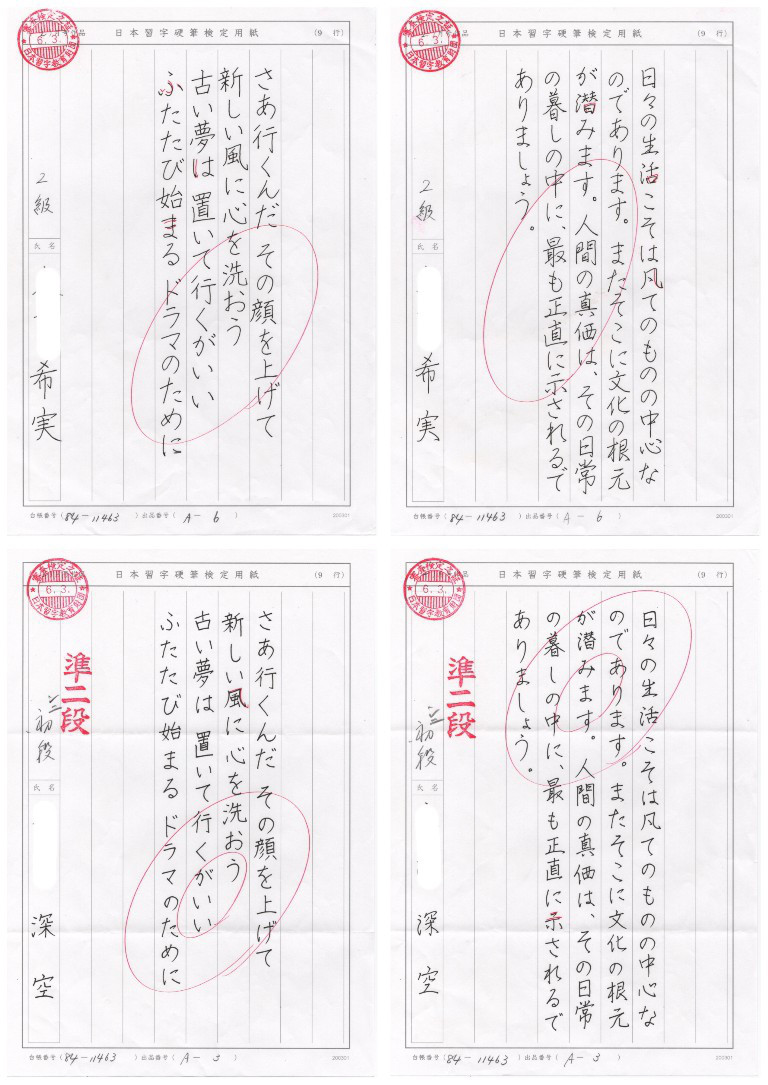 審査検定之証
6.3.
日本習字教育財団
日本習字硬筆検定用紙
(9 行)
さあ行くんだ その顔を上げて
新しい風に心を洗おう
古い夢は 置いて行くがいい
ふたたび始まる ドラマのために
2級
氏名
希実
台帳番号(84-11463)出品番号(A-6)
200301
審査検定之証
6.3.
日本習字教育財団
日本習字硬筆検定用紙
(9 行)
日々の生活こそは凡てのものの中心な
のであります。またそこに文化の根元
が潜みます。人間の真価は、その日常
の暮しの中に、最も正直に示されるで
ありましょう。
2級
氏名
希実
台帳番号(84-11463)出品番号(A-6)
200301
審査検定之証
6.3.
日本習字教育財団
日本習字硬筆検定用紙
(9 行)
さあ行くんだ その顔を上げて
新しい風に心を洗おう
古い夢は 置いて行くがいい
ふたたび始まる ドラマのために
準二段
初段
氏名
深空
台帳番号(84-11463)出品番号(A-3)
200301
審査検定之証
6.3.
日本習字教育財団
日本習字硬筆検定用紙
(9 行)
日々の生活こそは凡てのものの中心な
のであります。またそこに文化の根元
が潜みます。人間の真価は、その日常
の暮しの中に、最も正直に示されるで
ありましょう。
準二段
初段
氏名
深空
台帳番号(84-11463)出品番号(A-3)
200301